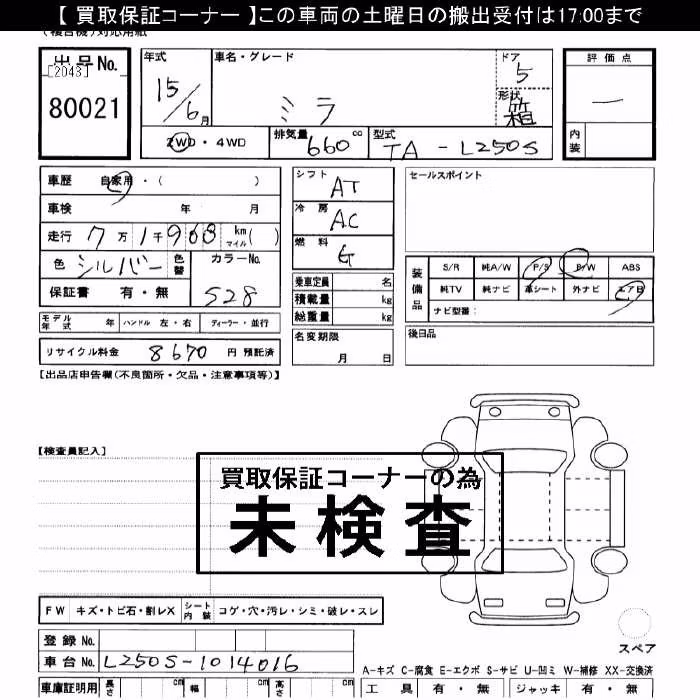 【 買取保証コーナー 】この車両の土曜日の搬出受付は17:00まで
(複合機)対応用紙
出品No.
[2043]
80021
年式
15/6月
車名・グレード
ミラ
ドア
5
形状
箱
評価点
一
内装
2WD・4WD
排気量
660cc
型式
TA-L250S
車歴 自家用・( )
車検 年 月
走行 7万1千968 km マイル( )
色 シルバー 色替
カラーNo.
528
保証書 有・無
シフト
AT
冷房
AC
燃料
G
乗車定員 名
積載量 kg
総重量 kg
セールスポイント
装備品
S/R 純A/W P/S P/W ABS
純TV 純ナビ 革シート 外ナビ エアB
ナビ型番:
モデル年式 年 ハンドル 左・右 ディーラー・並行
名変期限
月 日
後日品
リサイクル料金 8670 円 預託済
【出品店申告欄(不良箇所・欠品・注意事項等)】
【検査員記入】
買取保証コーナーの為
未検査
FW キズ・トビ石・割レX シート内装 コゲ・穴・汚レ・シミ・破レ・スレ
スペア
登録No.
車台No. L250S-1014016
A-キズ C-腐食 E-エクボ S-サビ U-凹ミ W-補修 XX-交換済
車庫証明用 長さ cm 幅 cm 高さ cm
工具 有・無 ジャッキ 有・無